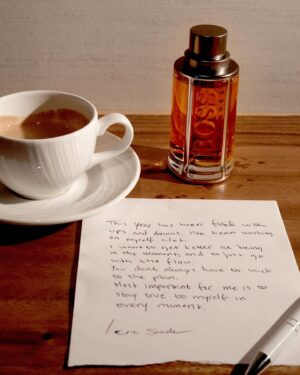 BOSS
This year has been filled with
ups and downs. I've been working
on myself alot.
I want to get better at being
in the moment, and to just go
with the flow.
You dont always have to stick
to the plan.
Most important for me is to
stay true to myself in
every moment.